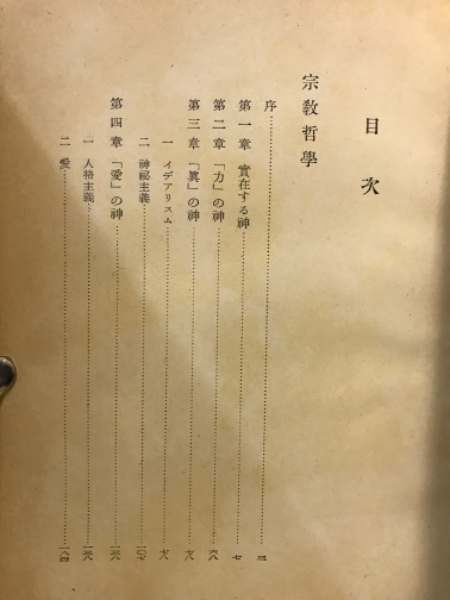 目次
宗敎哲學
序
第一章 實在する神 七
第二章 「力」の神 六八
第三章 「眞」の神 七八
一 イデアリスム 七八
二 神祕主義 一〇七
第四章 「愛」の神
一 人格主義
二 愛 一八四